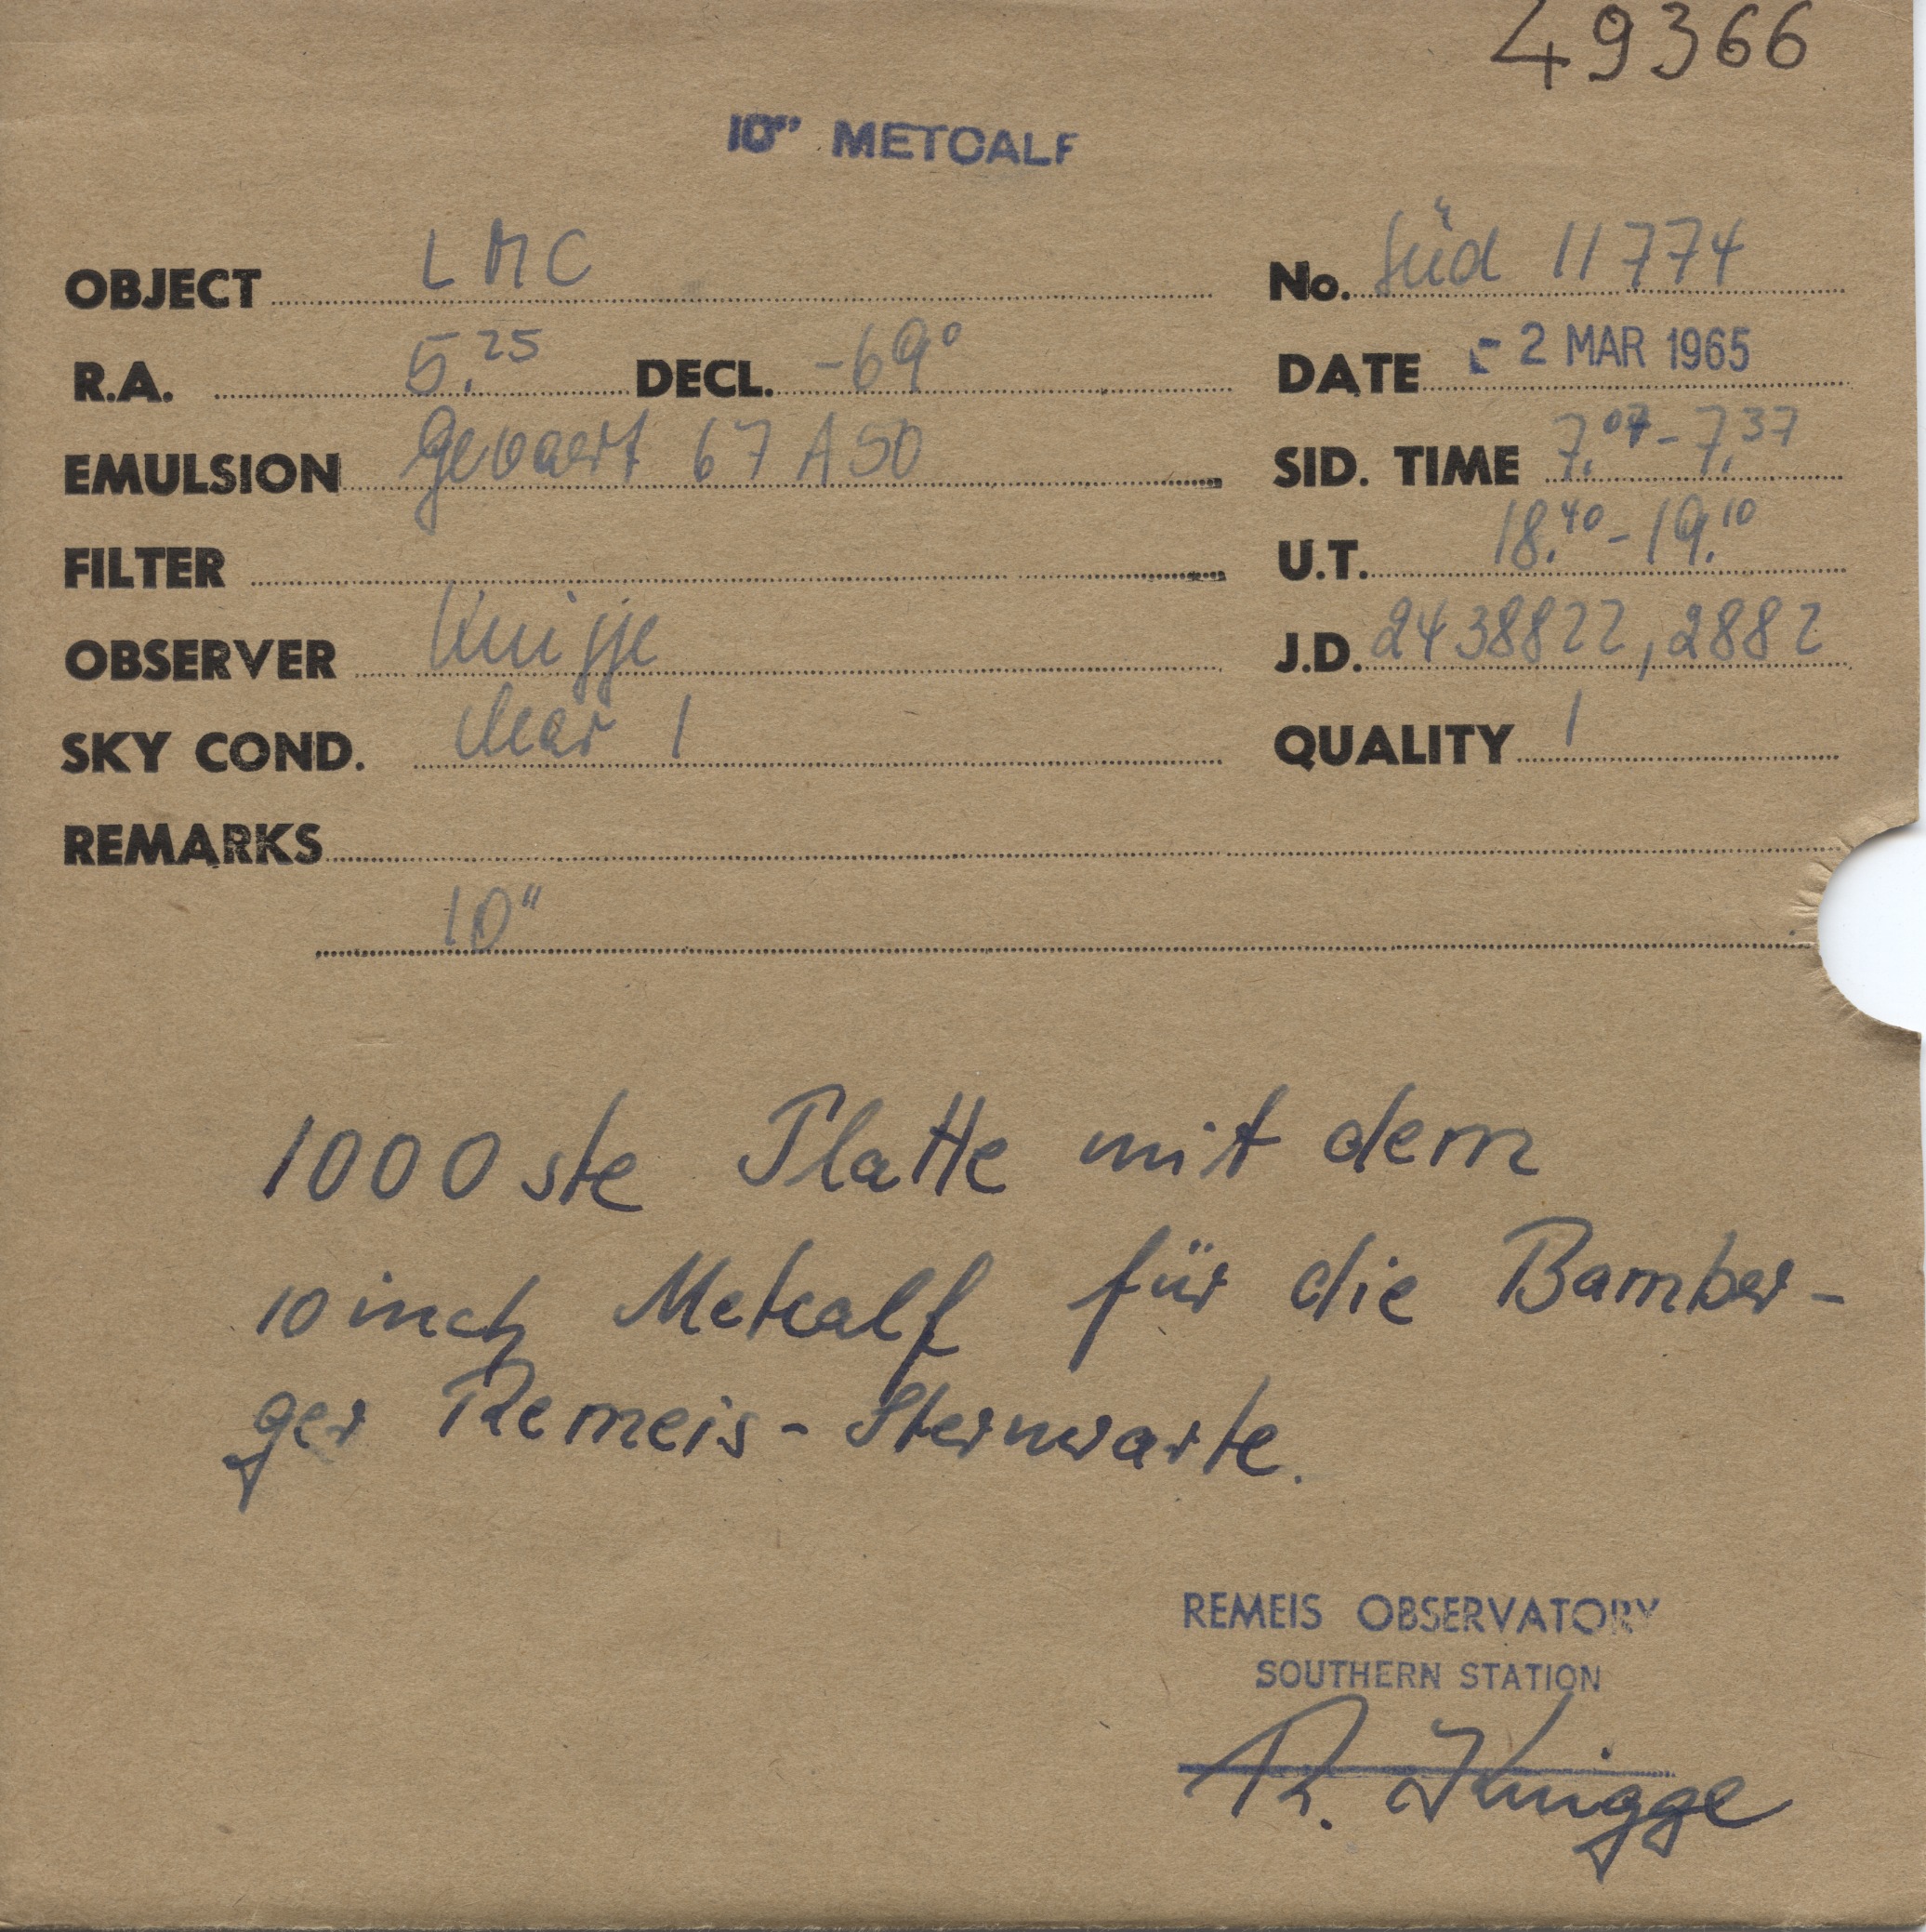 49366
10" METCALF
OBJECT LMC No. Süd 11774
R.A. 5.25 DECL. -69° DATE - 2 MAR 1965
EMULSION Gevaert 67 A 50 SID. TIME 7.07 - 7.37
FILTER U.T. 18.40 - 19.10
OBSERVER Knigge J.D. 2438822,2882
SKY COND. clear 1 QUALITY 1
REMARKS
10"
1000 ste Platte mit dem
10 inch Metcalf für die Bamber-
ger Remeis-Sternwarte.
REMEIS OBSERVATORY
SOUTHERN STATION
R. Knigge